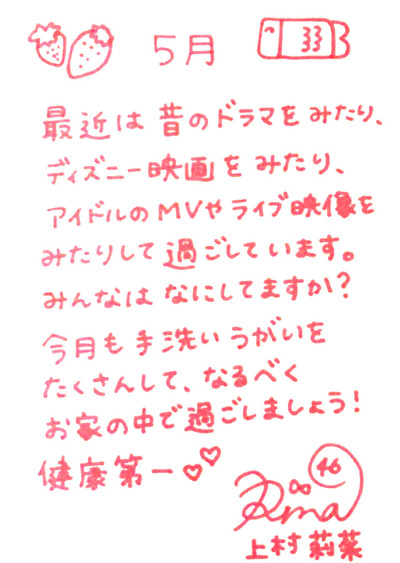 5月
最近は昔のドラマをみたり、
ディズニー映画をみたり、
アイドルのMVやライブ映像を
みたりして過ごしています。
みんなはなにしてますか?
今月も手洗いうがいを
たくさんして、なるべく
お家の中で過ごしましょう!
健康第一
46
Rina
上村莉菜